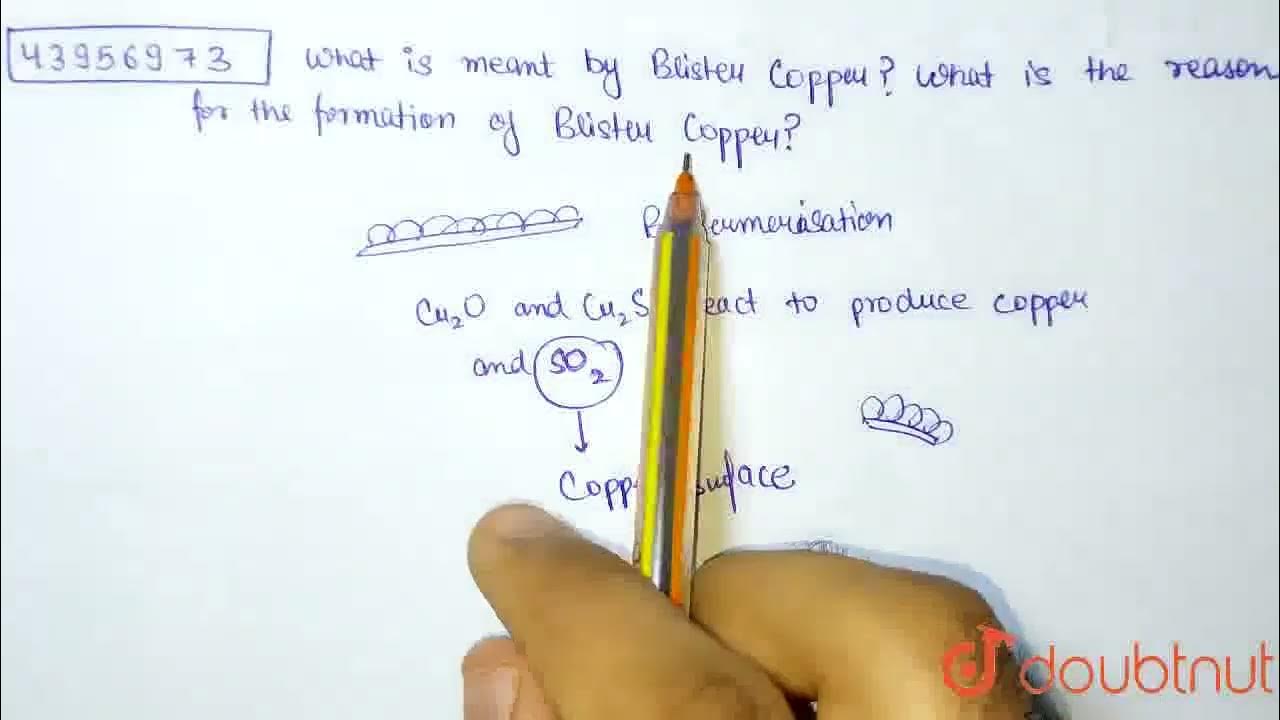 43956973 What is meant by Blister Copper? What is the reason
for the formation of Blister Copper?
Cu₂O and Cu₂S to produce copper
and SO₂
surface
doubtnut